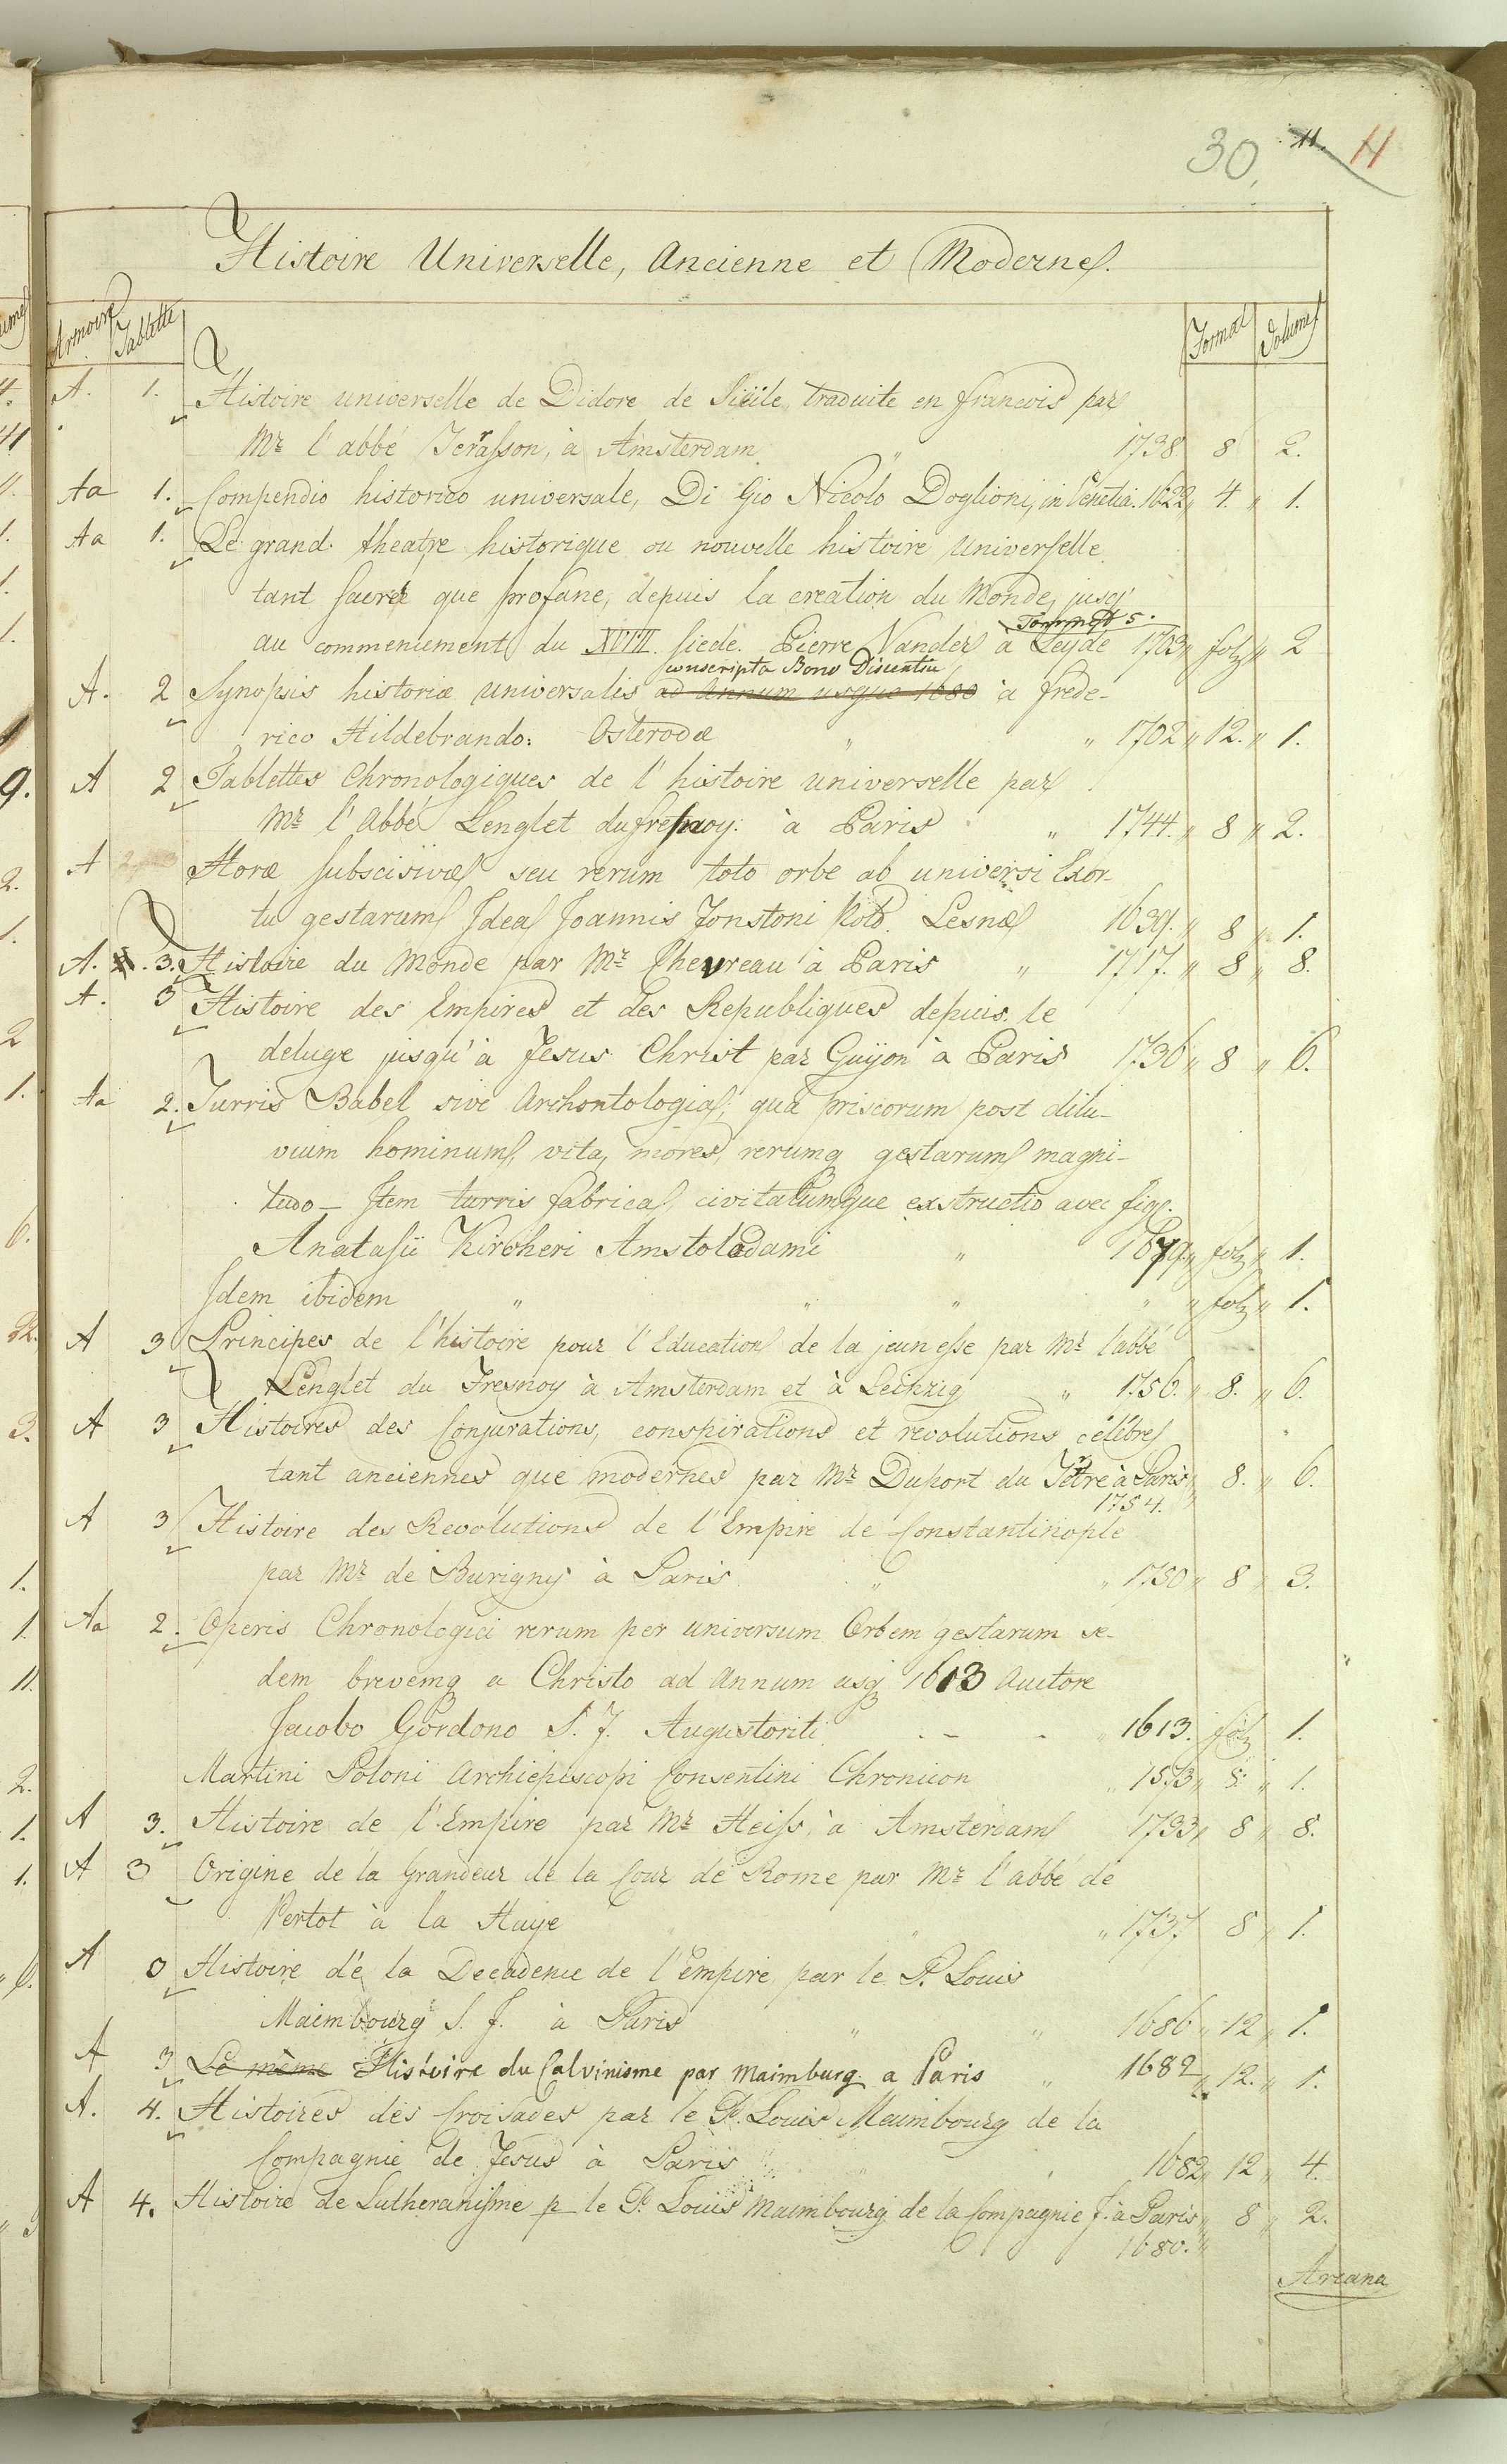 30. 11. 11
Histoire Universelle, Ancienne et Moderne.
Armoire Tablette Format Volume
A. 1. Histoire universelle de Didore de Sicile, traduite en francois par
Mr l'abbé Terrasson, à Amsterdam 1738 8 2.
Aa 1. Compendio historico universale, Di Gio Nicolo Doglioni, in Venetia. 1622 „ 4. „ 1.
Aa 1. Le grand theatre historique ou nouvelle histoire Universelle
tant sacrée que profane, depuis la creation du Monde, jusq'
Tomm 5.
au commencement du XVIII. siecle. Pierre Vander à Leyde 1703 „ fol „ 2
conscripta Bono Discentiu
A. 2 Synopsis historiæ universalis ad Annum usque 1680 à frede-
rico Hildebrando: Osterodæ „ „ 1702 „ 12. „ 1.
A 2 Tablettes Chronologiques de l'histoire universelle par
Mr l'Abbé Lenglet dufresnoy. à Paris „ 1744. „ 8 „ 2.
A Horæ subscisivæ seu rerum toto orbe ab universi Exor-
tu gestarum Idea Joannis Jonstoni Lesnæ 1639. „ 8 „ 1.
A. 3. Histoire du Monde par Mr Chevreau à Paris „ 1717. „ 8 „ 8.
A. 3 Histoire des Empires et des Republiques depuis le
deluge jusqu'à Jesus Christ par Guijon à Paris 1736 „ 8 „ 6.
Aa 2. Turris Babel sive Archontologia, qua priscorum post dilu-
vium hominum, vita, mores, rerumq gestarum magni-
tudo - Item turris fabrica, civitatumque exstructio avec fig.
Anatasii Kircheri Amstolodami „ 1679. „ fol „ 1.
Idem ibidem „ „ „ „ „ fol „ 1.
A 3 Principes de l'histoire pour l'Education de la jeunesse par Mr l'abbé
Lenglet du Fresnoy à Amsterdam et à Leipzig „ 1756. „ 8. „ 6.
A 3 Histoires des Conjurations, conspirations et revolutions célébres
tant anciennes que modernes par Mr Duport du Tetre à Paris „ 8. „ 6.
1754.
A 3 Histoire des Revolutions de l'Empire de Constantinople
par Mr de Burigny à Paris „ „ 1750 „ 8 „ 3.
Aa 2. Operis Chronologici rerum per universum Orbem gestarum se-
dem brevemq a Christo ad Annum usq 1613 Auctore
Jacobo Gordono S. J. Augustoriti . - - „ 1613. fol 1.
Martini Poloni Archiepiscopi Consentini Chronicon „ 1573 „ 8. „ 1.
A 3. Histoire de l'Empire par Mr Heiss, à Amsterdam 1733 „ 8 „ 8.
A 3 Origine de la Grandeur de la Cour de Rome par Mr l'abbé de
Vertot à la Haye „ „ 1737 8 „ 1.
A 3 Histoire de la Decadence de l'Empire par le P. Louis
Maimbourg S. J. à Paris „ „ 1686 „ 12 „ 1.
A 3 Le même Histoire du Calvinisme par Maimburg. a Paris „ 1682 „ 12. „ 1.
A. 4. Histoires des Croisades par le P. Louis Maimbourg de la
Compagnie de Jesus à Paris „ 1682 „ 12 „ 4.
A 4. Histoire de Lutheranisme p le P. Louis Maimbourg de la Compagnie J. à Paris „ 8 „ 2.
1680. „
Arcana